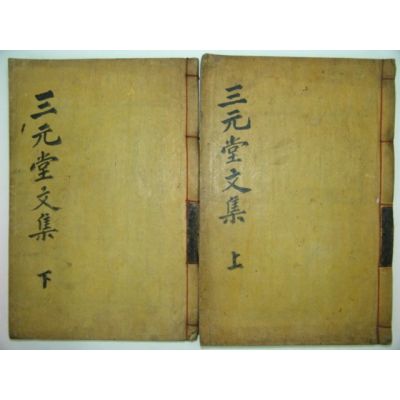 三元堂文集
上
三元堂文集
下